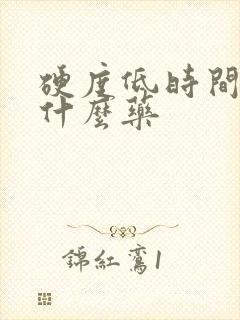 硬度低時間
什麼藥
錦紅鸞1